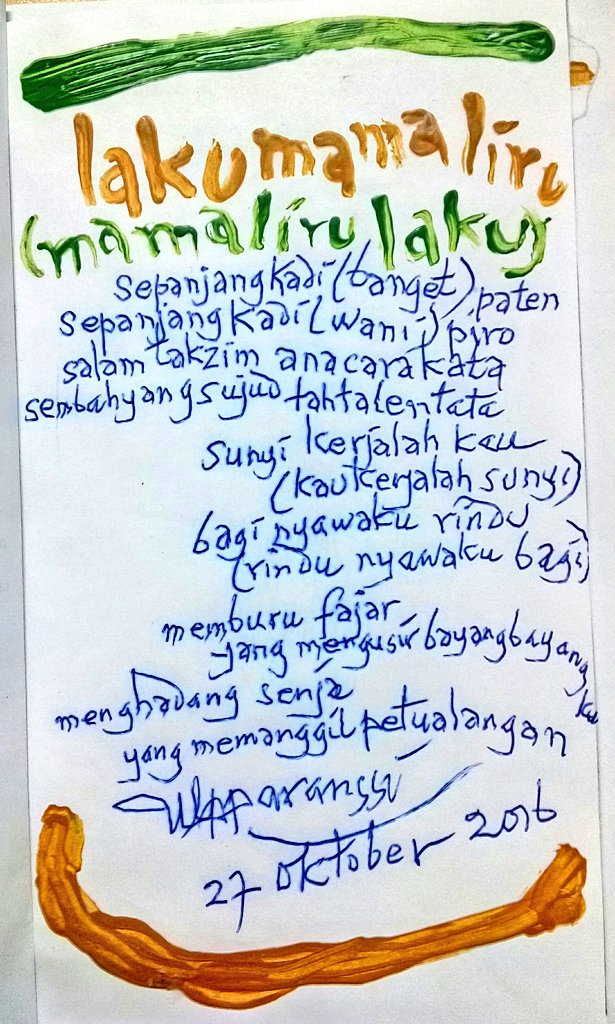 lakumamaliru
(mamaliru laku)
sepanjang kadi (banget) paten
sepanjang kadi (wani) piro
salam takzim anacarakata
sembahyang sujud tahtalentata
sunyi kerjalah kau
(kau kerjalah sunyi)
bagi nyawaku rindu
(rindu nyawaku bagi)
memburu fajar
yang mengusir bayangbayangku
menghadang senja
yang memanggil petualangan
27 Oktober 2016